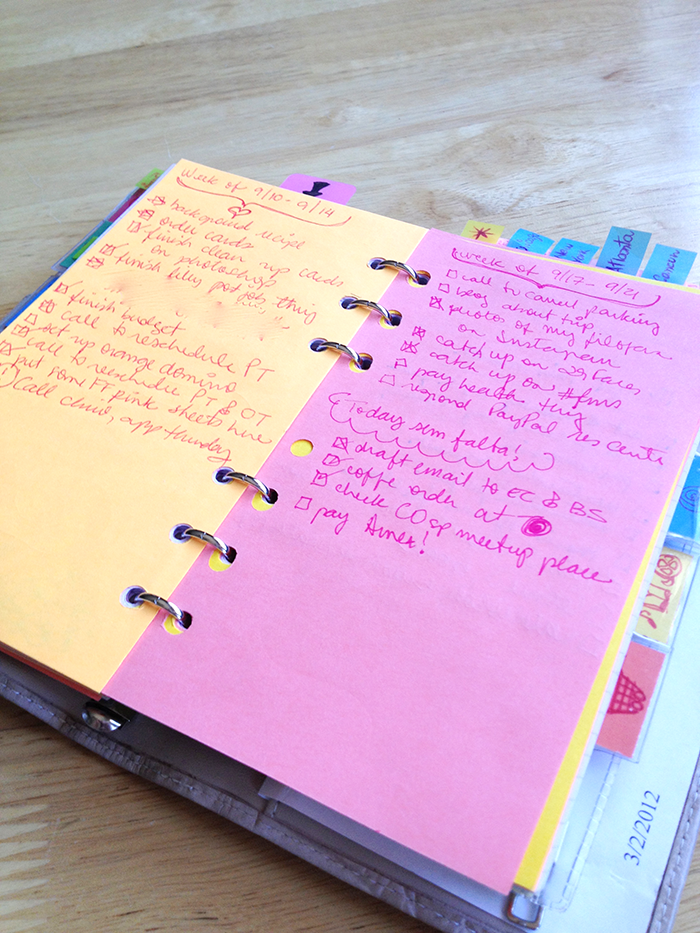 Week of 9/10 - 9/14
background recipe
order cards
finish clean up cards
on photoshop
finish files pot job thing
finish budget
call to reschedule PT
set up orange domino
call to reschedule PT & OT
put some FT pink sheets here
Call cloud, app thursday
Week of 9/17 - 9/21
call to cancel parking
blog about trip
photos of my filofax
on Instagram
catch up on 29 faces
catch up on #fms
pay health thing
respond PayPal res center
Today sem falta!
draft email to EC & BS
coffe order at
check COsp meetup place
pay Amex!
Atlanta
3/2/2012